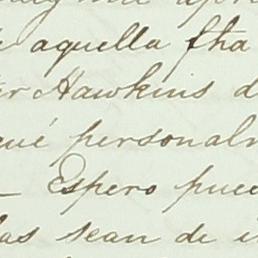 aquella fha
Hawkins d
personal
— Espero pue
las sean de i